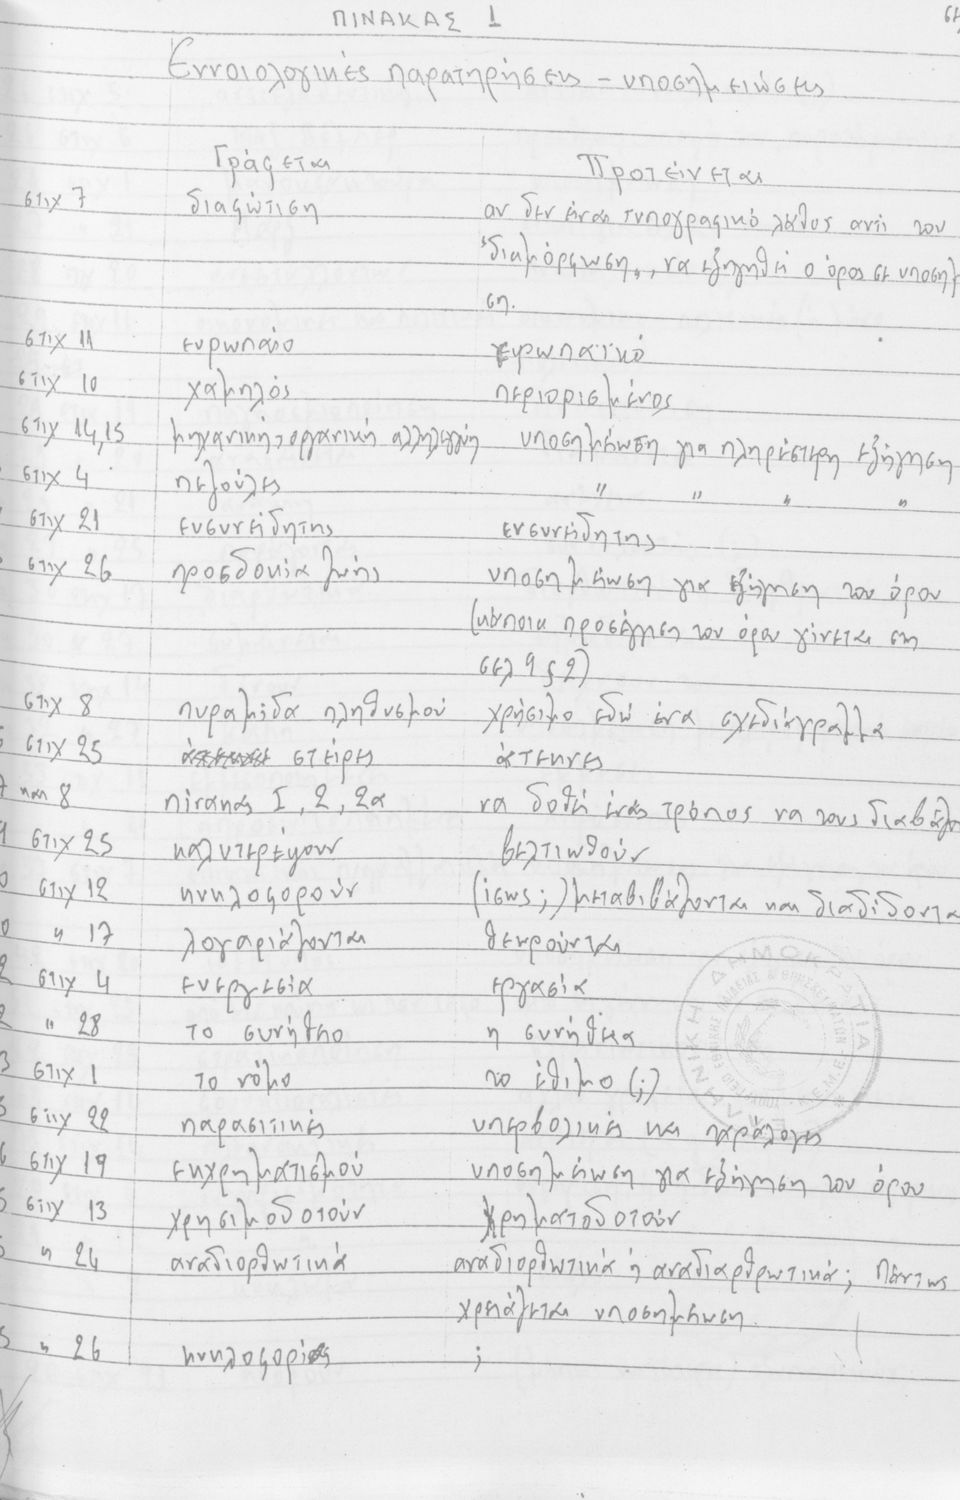 ΠΙΝΑΚΑΣ 1
Εννοιολογικές παρατηρήσεις - υποσημειώσεις
Γράφεται Προτείνεται
στιχ 7 διαφώτιση αν δεν είναι τυπογραφικό λάθος αντί του
"διαμόρφωση", να εξηγηθεί ο όρος σε υποσημ
ση.
στιχ 11 ευρωπαίο ευρωπαϊκό
στιχ 10 χαμηλός περιορισμένος
στιχ 14,15 μηχανική, οργανική αλληλεγγύη υποσημείωση για πληρέστερη εξήγηση
στιχ 4 πελούζες " " " "
στιχ 21 ευσυνείδητης ενσυνείδητης
στιχ 26 προσδοκία ζωής υποσημείωση για εξήγηση του όρου
(κάποια προσέγγιση του όρου γίνεται στη
σελ 9 § 2)
στιχ 8 πυραμίδα πληθυσμού χρήσιμο εδώ ένα σχεδιάγραμμα
στιχ 25 στείρες άτεκνες
7 και 8 πίνακας 1, 2, 2α να δοθεί ένας τρόπος να τους διαβάζο
στιχ 25 καλυτερέψουν βελτιωθούν
στιχ 12 κυκλοφορούν (ίσως;) μεταβιβάζονται και διαδίδοντα
" 17 λογαριάζονται θεωρούνται
στιχ 4 ενεργεσία εργασία
" 28 το συνήθειο η συνήθεια
στιχ 1 το νόμο το έθιμο (;)
στιχ 22 παρασιτικές υπερβολικές και παράλογες
στιχ 19 εκχρηματισμού υποσημείωση για εξήγηση του όρου
στιχ 13 χρησιμοδοτούν χρηματοδοτούν
" 24 αναδιορθωτικά αναδιορθωτικά ή αναδιαρθρωτικά; Πάντως
χρειάζεται υποσημείωση.
" 26 κυκλοφορίας ;
ΕΛΛΗΝΙΚΗ ΔΗΜΟΚΡΑΤΙΑ